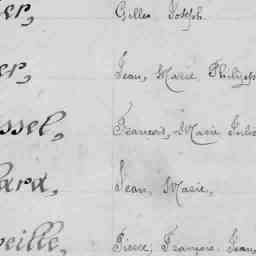 er, Gilles Joseph.
er, Jean, Marie, Philippe
ssel, François, Marie, Jules
ard, Jean, Marie,
eille, Pierre, François, Jean